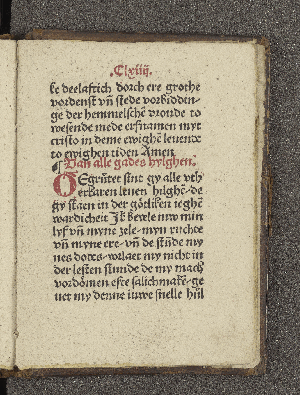 Clxiiij.
ke deelaftich dorch ere grothe
vordenst vñ stede vorbiddin-
ge der hemmelschē vronde to
wesende mede erfnamen myt
cristo in deme ewighē leuende
to ewighen tiden Amen
¶ Van alle gades hylghen.
GEgrutet sint gy alle vth
erkaren leuen hilghē de
gy staen in der götliken ieghē
wardicheit Jk beuele iuw min
lyf vñ myne zele myn ruchte
vñ myne ere vñ de stūde my
nes dotes vorlaet my nicht in
der lesten stunde de my mach
vordömen efte salichmakē ge
uet my denne iuwe snelle hül